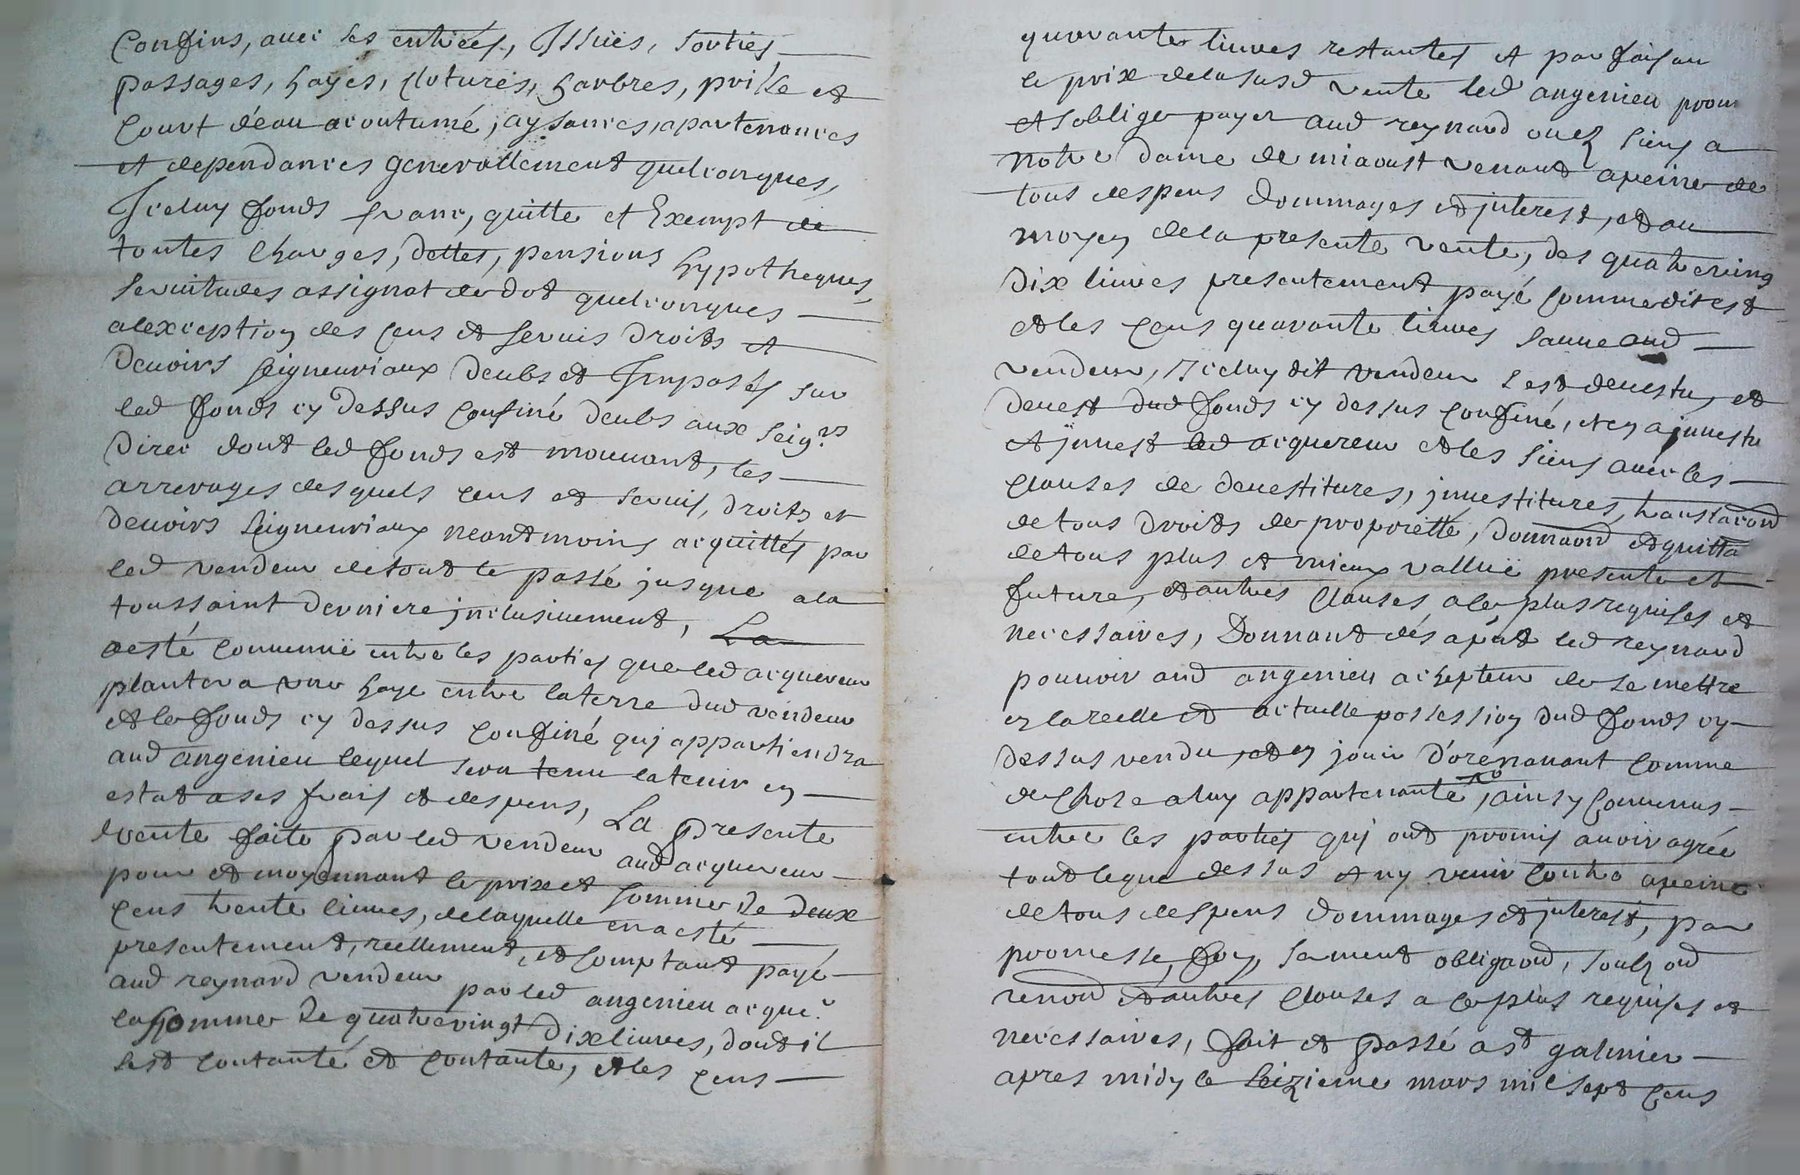 Confins, avec ses entrées, Issües, sorties
passages, hayes, clotures, harbres, prise et
Court déau acoutumé, aysances, apartenances
et dependances generallement quelconques,
Iceluy fonds franc, quitte et Exempt de
toutes charges, dettes, pensions hypotheques,
servitudes assignat de dot quelconques
alexception des cens et servis droits et
devoirs seigneuriaux deubs et Imposés sur
led fonds cy dessus confiné deubs aux seigrs
direc dont led fonds est mouvant, les
arrerages desquels cens et servis, droits et
devoirs seigneuriaux neantmoins acquittés par
led vendeur detout le passé jusque ala
toussaint derniere inclusivement, La
aesté convenuë entre les parties que led acquereur
plantera une haye entre laterre dud vendeur
et le fonds cy dessus confiné quj appartiendra
aud angenieu lequel sera tenu latenir en
estat ases frais et despens, La presente
vente faite par led vendeur aud acquereur
pour et moyennant le prix et somme de deux
cens trente livres, delaquelle en a esté
presentement, reellement, et comptant payé
aud reynard vendeur par led angenieu acque.r
la somme de quatrevingt dix livres, dont il
sest contanté et contante, et les cens
quarante livres restantes et parfaisan
le prix delasusd vente led angenieu prom
et soblige payer aud reynard ou ez siens a
notre dame de miaoust venant apeine de
tous despens dommages et jnterest, et au
moyen dela presente vente, des quatreving
dix livres presentement payé comme dit est
et les cens quarante livres sauve aud
vendeur, Iceluy dit vendeur sest devestu et
devest dud fonds cy dessus confiné, et en a jnvestu
et jnvest led acquereur et les siens avec les
clauses de devestitures, jnvestitures, translaõn
de tous droits de proprietté, donnaõn et quitta
de tous plus et mieux vallue presente et
future, et autres clauses a ce plus requises et
necessaires, Donnant dés aput led reynard
pouvoir aud angenieu achepteur de se mettre
en la reelle et actuelle possession dud fonds cy
dessus vendu, et en jouir d'orenavant comme
de chose a luy appartenante, ainsy convenus
entre les parties quj ont promis avoir agréé
tout leque dessus et ny venir contre apeine
de tous despens dommages et jnterest, par
promesse, foy, serment obligaõn, soubz õn
renõn et autres clauses a ce plus requises et
necessaires, fait et passé a st galmier
apres midy le seizieme mars mil sept cens